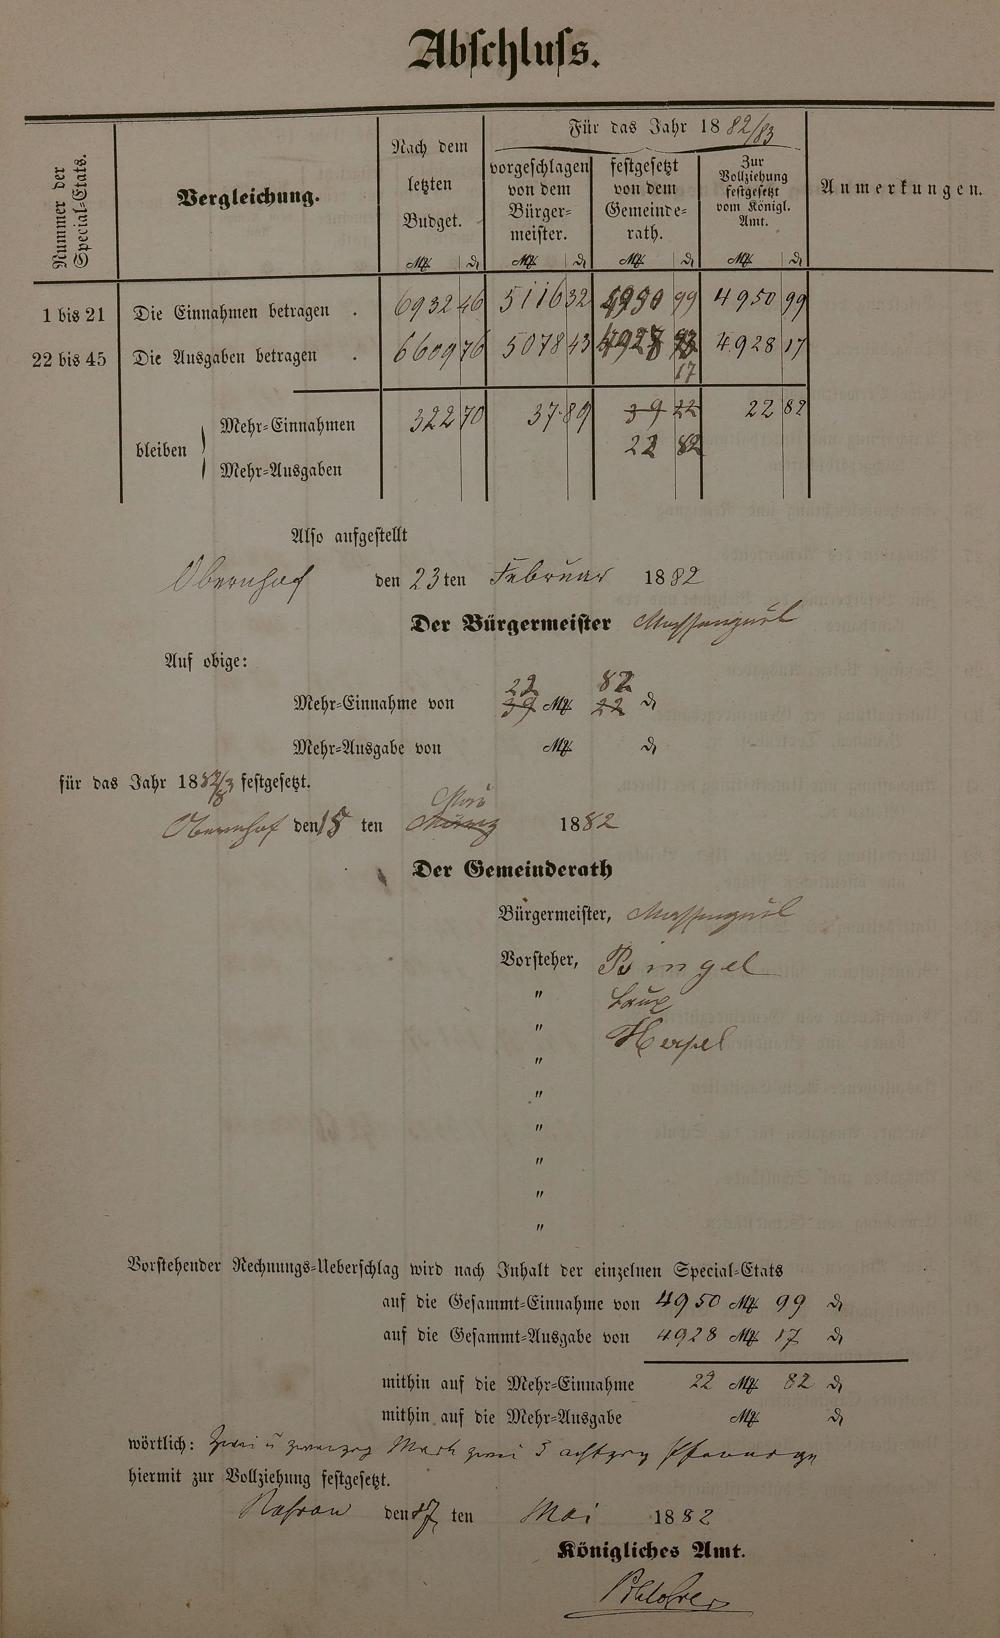 Abschluss.
Nummer der Special-Etats.
Vergleichung.
Nach dem letzten Budget.
Für das Jahr 1882/83
vorgeschlagen von dem Bürger-meister.
festgesetzt von dem Gemeinde-rath.
Zur Vollziehung festgesetzt vom Königl. Amt.
Anmerkungen.
1 bis 21 Die Einnahmen betragen . 6932 46 5116 32 4950 99 4950 99
22 bis 45 Die Ausgaben betragen . 6609 76 5078 43 4928 4928 17
17
bleiben
Mehr-Einnahmen 322 70 37 89 39 22 22 82
22 82
Mehr-Ausgaben
Also aufgestellt
Obernhof den 23ten Februar 1882
Der Bürgermeister
Auf obige:
22 82
Mehr-Einnahme von 39 M 22 d
Mehr-Ausgabe von M d
für das Jahr 1882/83 festgesetzt.
Mai
Obernhof den 15 ten März 1882
Der Gemeinderath
Bürgermeister,
Vorsteher, Bingel
" Laux
" Herpel
"
"
"
"
"
"
Vorstehender Rechnungs-Ueberschlag wird nach Inhalt der einzelnen Special-Etats
auf die Gesammt-Einnahme von 4950 M 99 d
auf die Gesammt-Ausgabe von 4928 M 17 d
mithin auf die Mehr-Einnahme 22 M 82 d
mithin auf die Mehr-Ausgabe M d
wörtlich: Zwei u zwanzig Mark zwei u achtzig Pfennige
hiermit zur Vollziehung festgesetzt.
Nassau den 17 ten Mai 1882
Königliches Amt.